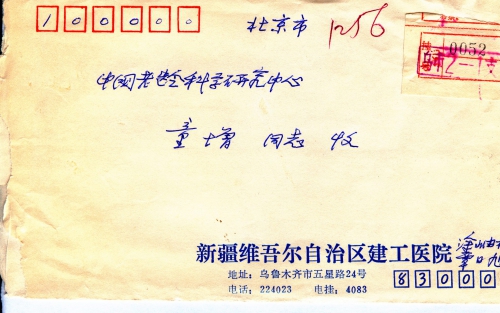 100000
北京市
1256
0052
中国老龄科学研究中心
童增 同志 收
新疆维吾尔自治区建工医院
地址：乌鲁木齐市五星路24号
电话：224023 电挂：4083
83000